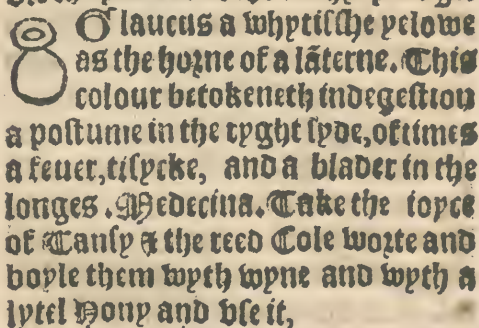 Glaucus a whytisshe yelowe
as the horne of a lãterne. This
colour betokeneth indegestion
a postume in the ryght syde, oftimes
a feuer, tisycke, and a blader in the
longes. Medecina. Take the ioyce
of Tansy & the reed Cole worte and
boyle them wyth wyne and wyth a
lytel Hony and vse it,